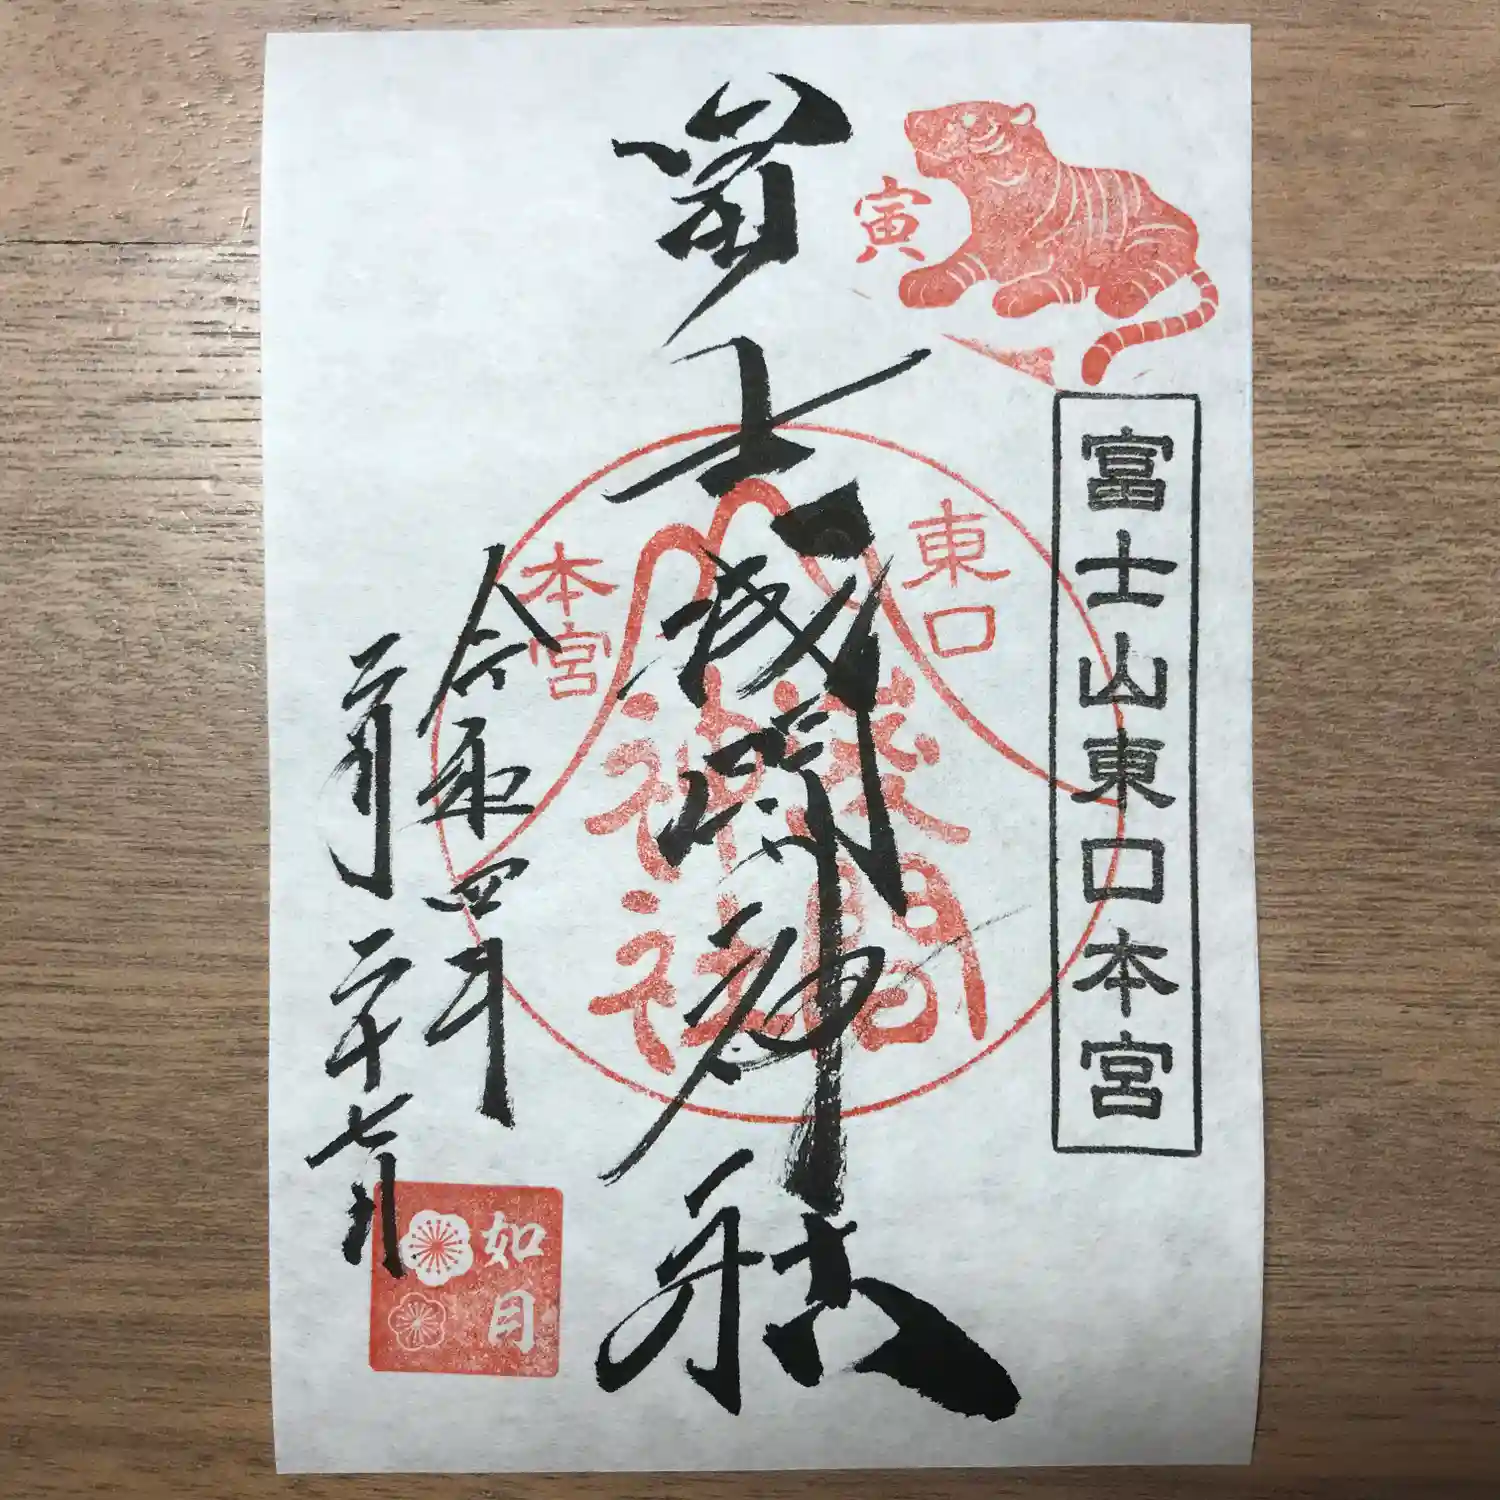 寅
富士山東口本宮
冨士浅間神社
東口
本宮
淺間
神社
令和四年
二月二十七日
如月